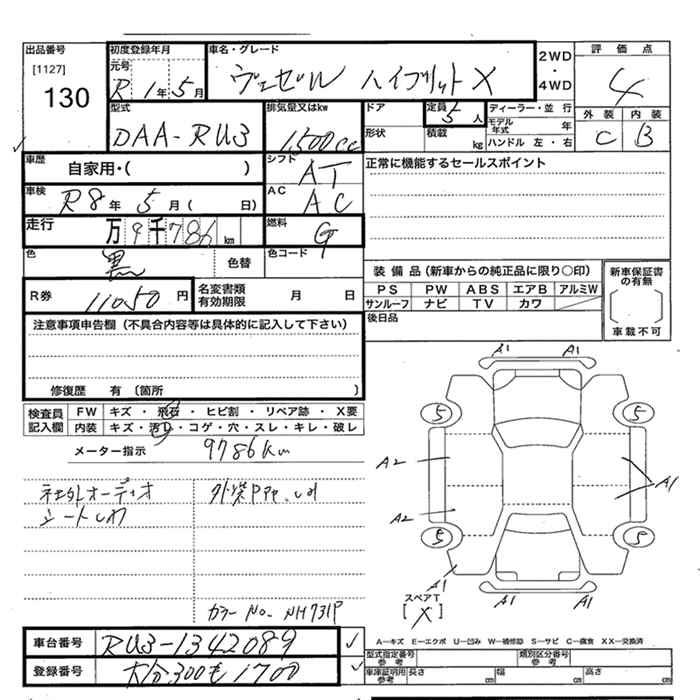 出品番号
[1127]
130
初度登録年月
元号
R 1年 5月
車名・グレード
ヴェゼル ハイブリット X
2WD
・
4WD
評価点
4
外装 内装
C B
型式
DAA-RU3
排気量又はkw
1500cc
ドア
形状
定員
5人
積載
kg
ディーラー・並行
モデル年式 年
ハンドル 左・右
車歴
自家用・( )
シフト
AT
正常に機能するセールスポイント
車検
R8年 5月( 日)
AC
AC
走行
万 9千786 km
燃料
G
色
黒
色替
色コード
装備品(新車からの純正品に限り○印)
PS PW ABS エアB アルミW
サンルーフ ナビ TV カワ
新車保証書の有無
車載不可
R券
11050円
名変書類有効期限 月 日
後日品
注意事項申告欄(不具合内容等は具体的に記入して下さい)
修復歴 有〔箇所 〕
検査員記入欄
FW キズ・飛石・ヒビ割・リペア跡・X要
内装 キズ・汚レ・コゲ・穴・スレ・キレ・破レ
メーター指示 9786km
社外オーディオ
シートしわ
カラーNo. NH731P
A1 A1
5 5
A2 A1
A2
5 5
A1
A1 A1
スペアT
[X]
車台番号 RU3-1342089
登録番号 大分300も1700
A―キズ E―エクボ U―凹み W―補修跡 S―サビ C―腐食 XX―交換済
型式指定番号 参考
類別区分番号 参考
車庫証明用 参考
長さ cm 幅 cm 高さ cm